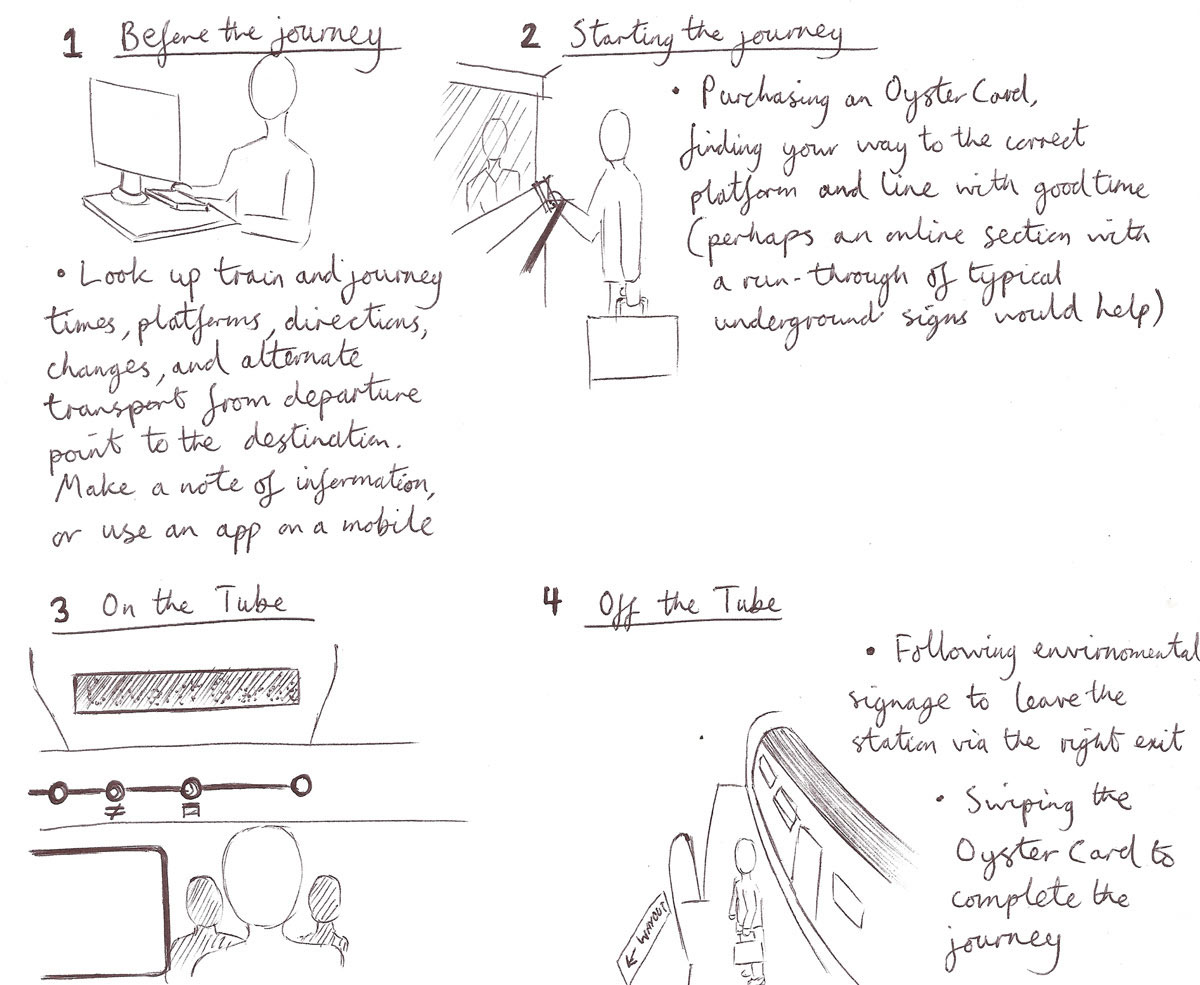 1 Before the journey
• Look up train and journey
times, platforms, directions,
changes, and alternate
transport from departure
point to the destination.
Make a note of information,
or use an app on a mobile
2 Starting the journey
• Purchasing an Oyster Card,
finding your way to the correct
platform and line with good time
(perhaps an online section with
a run-through of typical
underground signs would help)
3 On the Tube
4 Off the Tube
• Following envirnomental
signage to leave the
station via the right exit
• Swiping the
Oyster Card to
complete the
journey
← WAYOUT